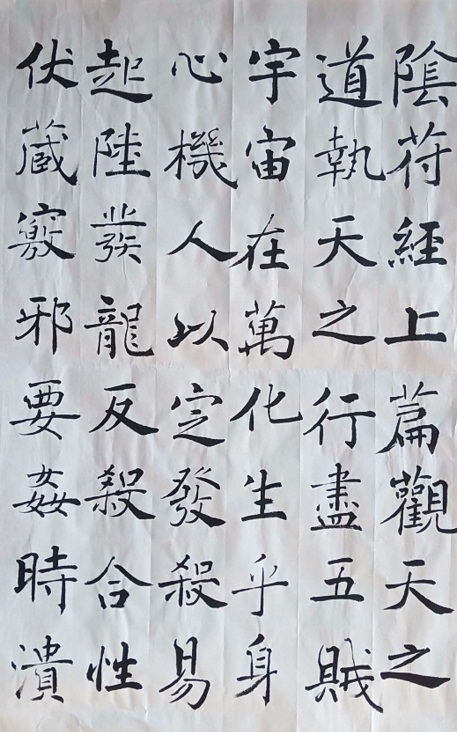 陰符經上篇觀天之
道執天之行盡五賊
宇宙在萬化生乎身
心機人以定發殺易
起陸發龍反殺合性
伏藏竅邪要姦時潰